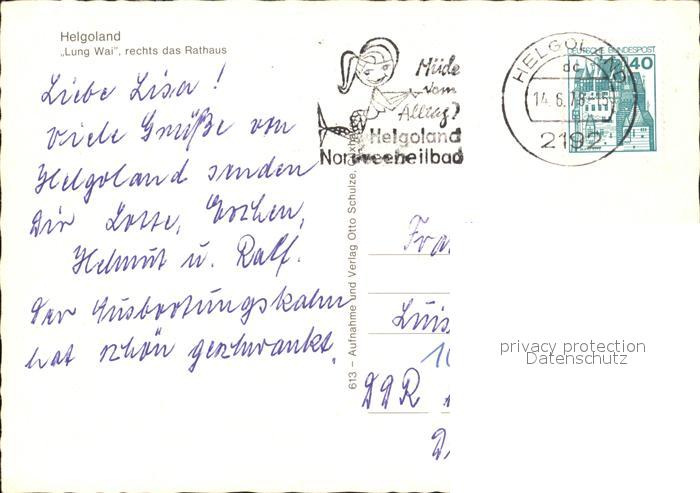 Helgoland
„Lung Wai", rechts das Rathaus
Liebe Lisa !
Viele Grüße von
Helgoland senden
Dir Lotte,
Helmut u. Ralf.
Der Ausbootungskahn
hat schön geschwankt.
Müde
vom
Alltag?
Helgoland
Nordseeheilbad
HELGOLAND
dc
14.6.78-15
2192
DEUTSCHE BUNDESPOST
40
613 – Aufnahme und Verlag Otto Schulze,
Fra
Luis
10
DDR
privacy protection
Datenschutz